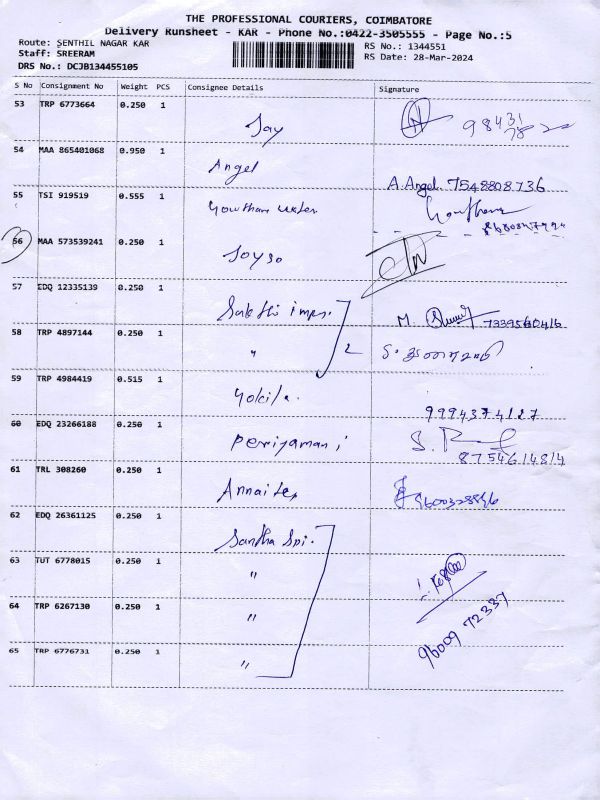 THE PROFESSIONAL COURIERS, COIMBATORE
Delivery Runsheet - KAR - Phone No.:0422-3505555 - Page No.:5
Route: SENTHIL NAGAR KAR
RS No.: 1344551
Staff: SREERAM
RS Date: 28-Mar-2024
DRS No.: DCJB134455105
S No Consignment No Weight PCS Consignee Details Signature
53 TRP 6773664 0.250 1 Jay
54 MAA 865401068 0.950 1 Angel A. Angel 7548808736
55 TSI 919519 0.555 1 Gowtham
56 MAA 573539241 0.250 1
57 EDQ 12335139 0.250 1 Sakthi imps. M.
58 TRP 4897144 0.250 1 " 2
59 TRP 4984419 0.515 1 Gokila. 9994374127
60 EDQ 23266188 0.250 1 Periyamani S.
8754614814
61 TRL 308260 0.250 1
62 EDQ 26361125 0.250 1 Sandha Spi.
63 TUT 6778015 0.250 1 "
64 TRP 6267130 0.250 1 "
9600972337
65 TRP 6776731 0.250 1 "